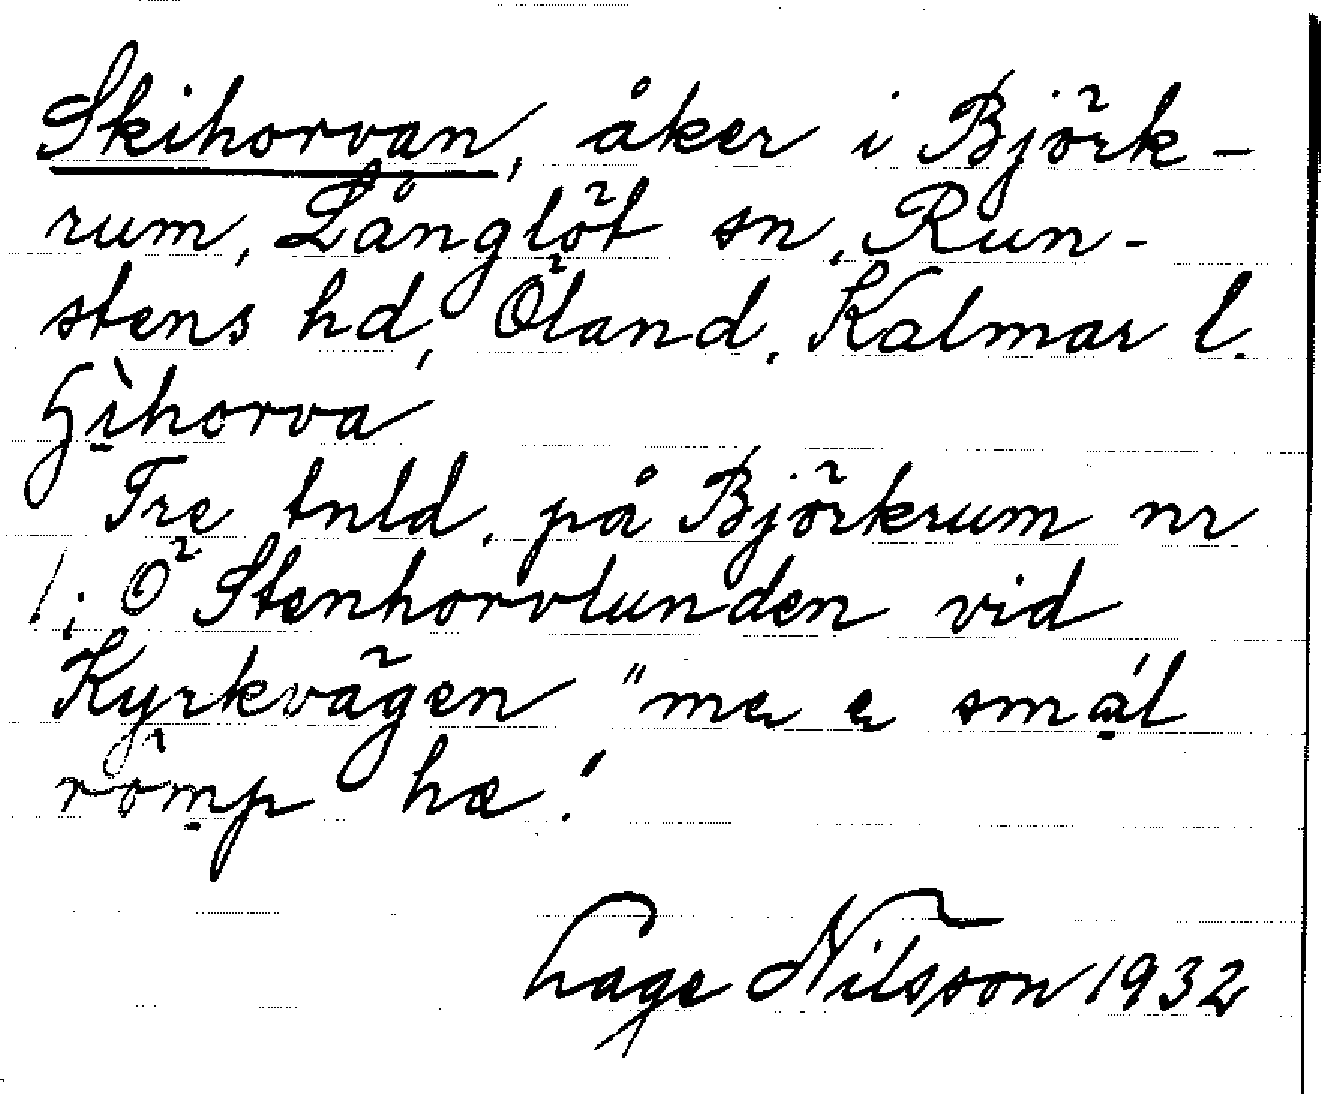 Skihorvan, åker i Björk-
rum, Långlöt sn, Run-
stens hd, Öland, Kalmar l.
ʃìhorva
Tre tnld, på Björkrum nr
1; Ö Stenhorvlunden vid
Kyrkvägen "me e smál
römp hæ!
Lage Nilsson 1932